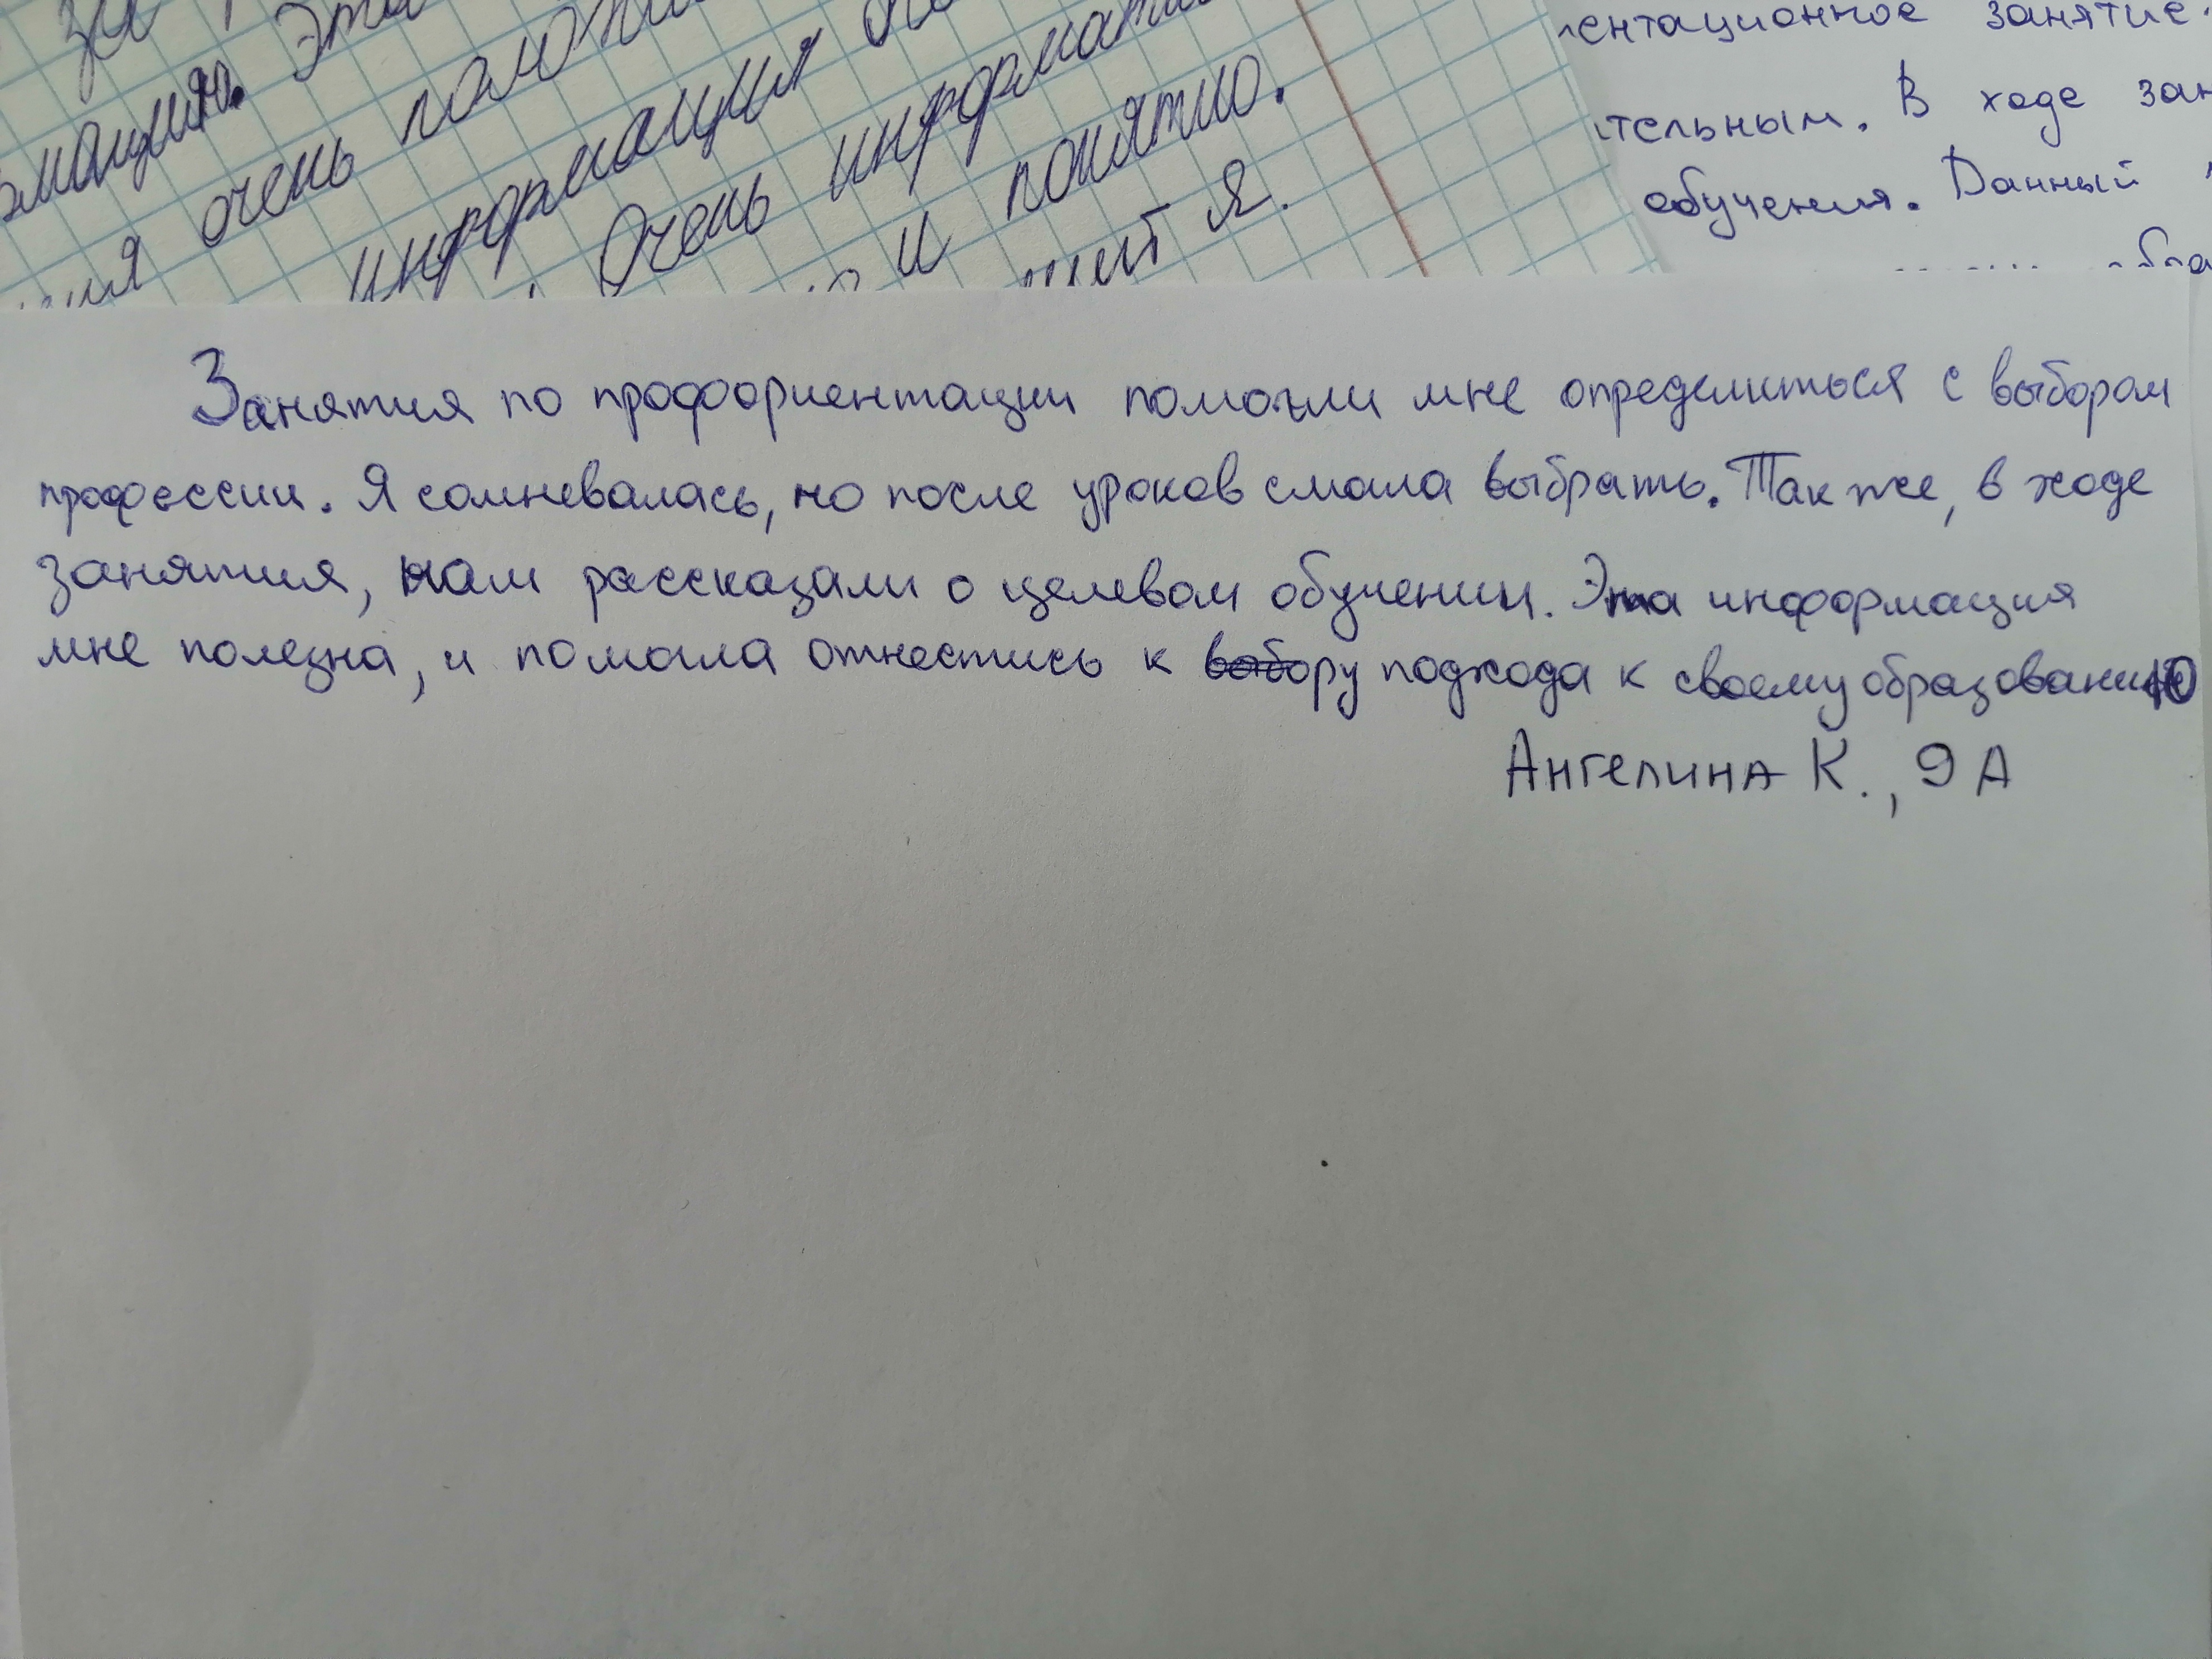 очень
информация
Очень
и понятно.
я.
ентационное занятие.
тельным. В ходе зан
обучения. Данный
Занятия по профориентации помогли мне определиться с выбором
профессии. Я сомневалась, но после уроков смогла выбрать. Также, в ходе
занятия, нам рассказали о целевом обучении. Эта информация
мне полезна, и помогла отнестись к выбору подхода к своему образованию
Ангелина К., 9 А